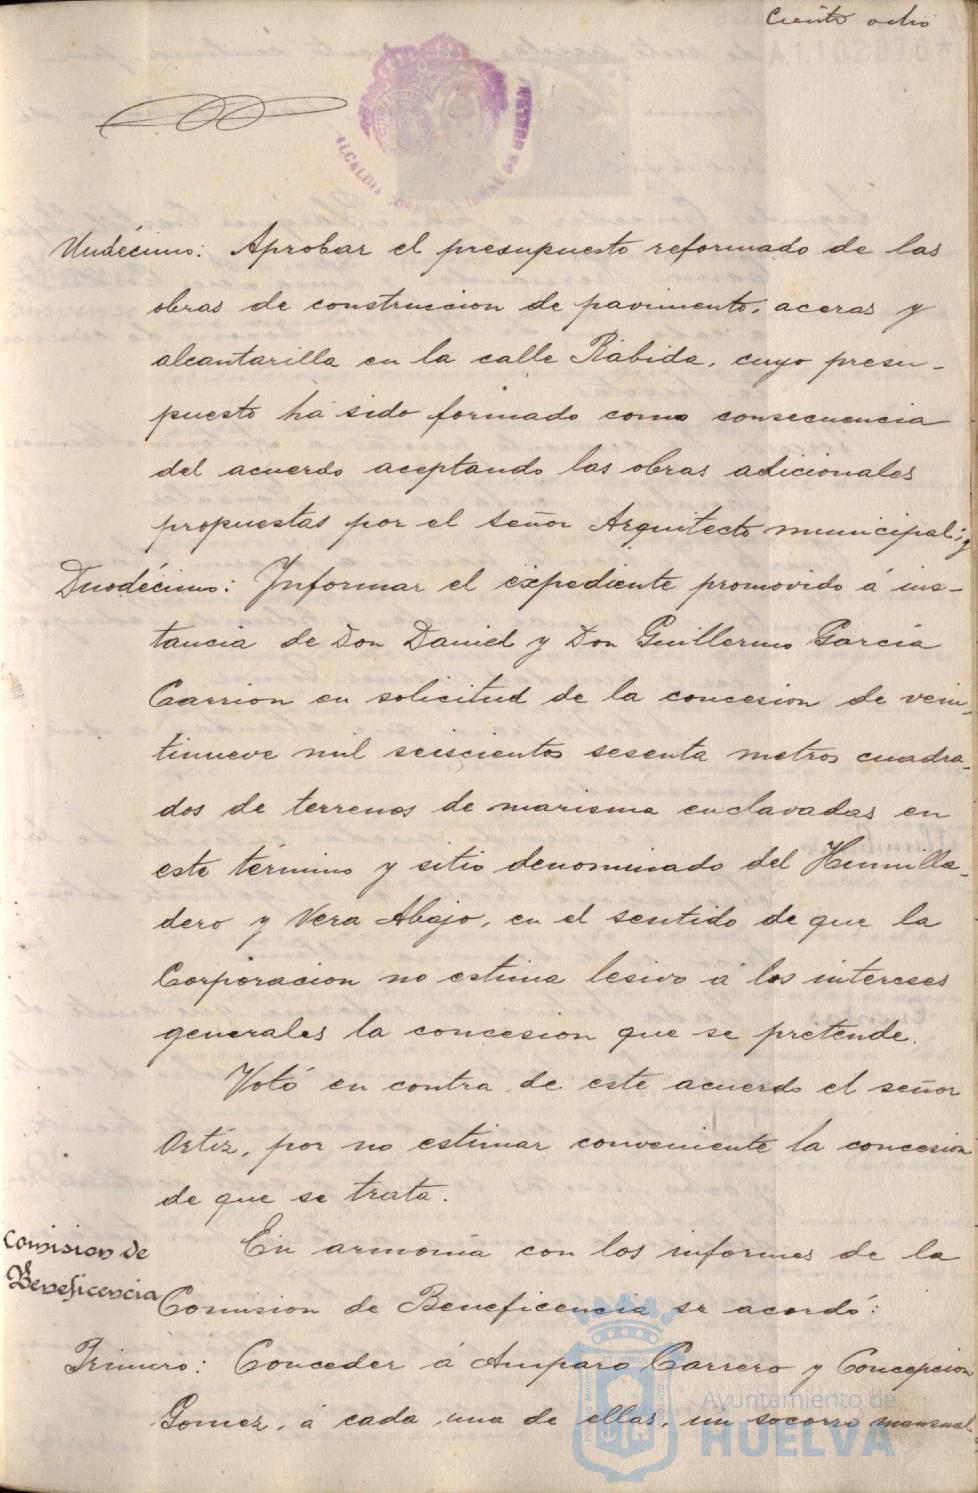 Ciento ocho
ALCALDIA
HUELVA
Undécimo: Aprobar el presupuesto reformado de las
obras de construccion de pavimento, aceras y
alcantarilla en la calle Rábida, cuyo presu-
puesto ha sido formado como consecuencia
del acuerdo aceptando las obras adicionales
propuestas por el señor Arquitecto municipal; y
Duodécimo: Informar el expediente promovido á ins-
tancia de Don Daniel y Don Guillermo García
Carrion en solicitud de la concesion de vein-
tinueve mil seiscientos sesenta metros cuadra-
dos de terrenos de marisma enclavadas en
este término y sitio denominado del Humilla-
dero y Vera Abajo, en el sentido de que la
Corporacion no estima lesivo á los intereses
generales la concesion que se pretende.
Votó en contra de este acuerdo el señor
Ortíz, por no estimar conveniente la concesion
de que se trata.
Comision de
Beneficencia
En armonía con los informes de la
Comision de Beneficencia se acordó:
Primero: Conceder á Amparo Carrero y Concepcion
Gomez, á cada una de ellas, un socorro mensual
Ayuntamiento de
HUELVA